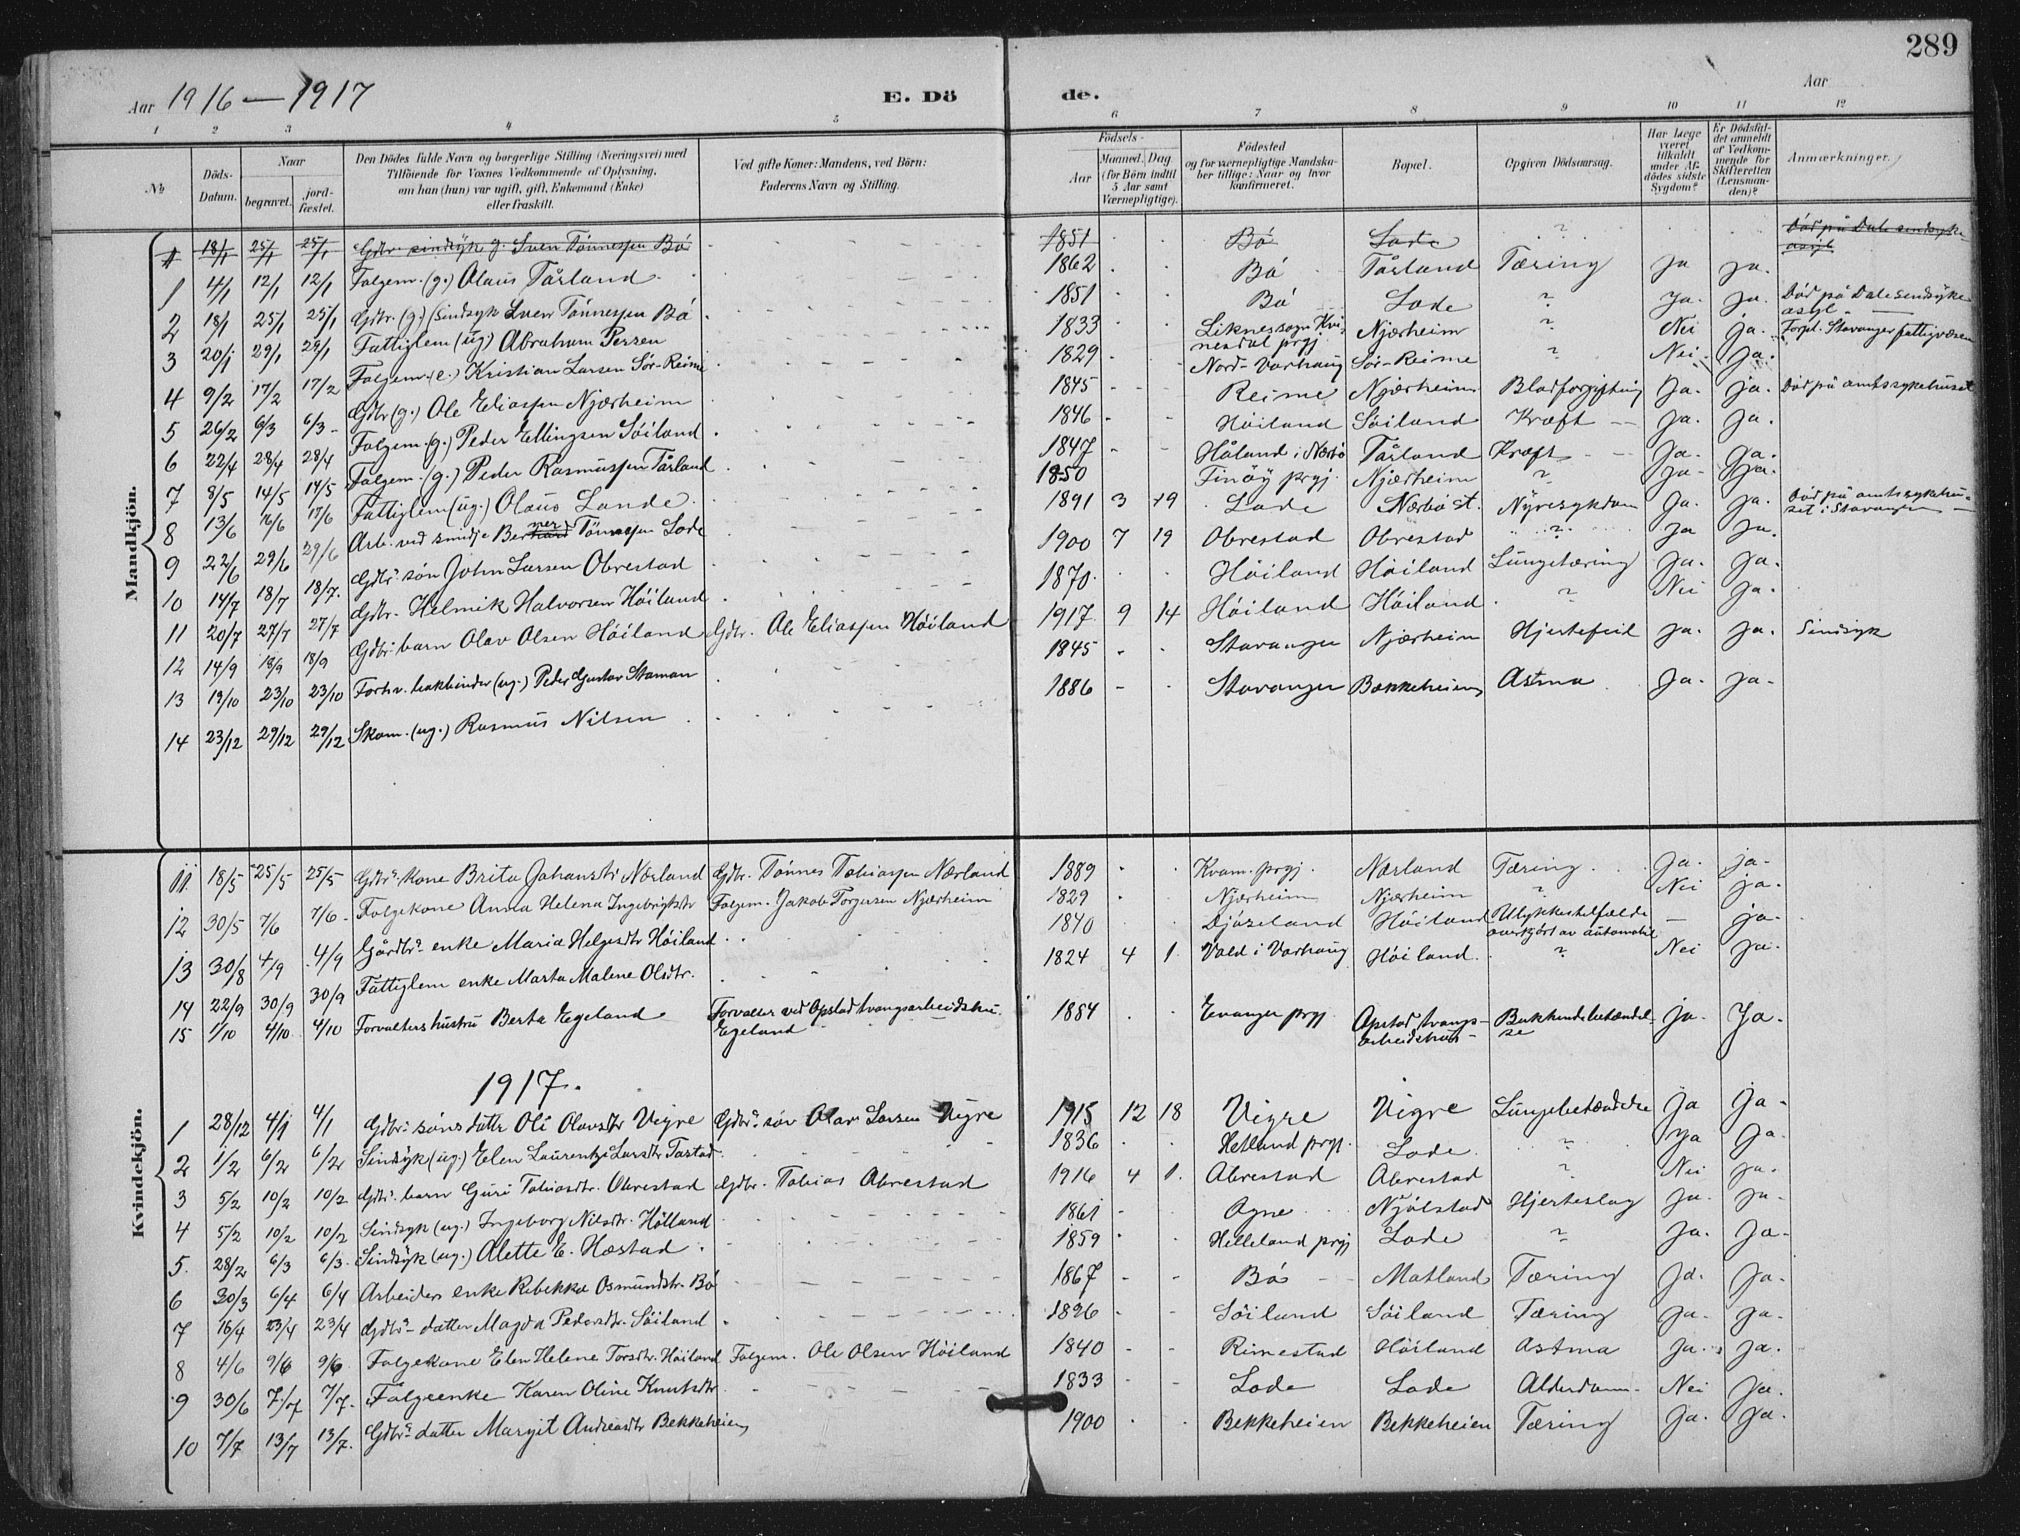 289
Aar 1916 — 1917
E. Dö de.
Aar
1 2 3 4 5 6 7 8 9 10 11 12
№
Döds-Datum.
Naar
begravet. jord-fæstet.
Den Dödes fulde Navn og borgerlige Stilling (Næringsvei) med
Tilföiende for Voxnes Vedkommende af Oplysning,
om han (hun) var ugift, gift, Enkemand (Enke)
eller fraskilt.
Ved gifte Koner: Mandens, ved Börn:
Faderens Navn og Stilling.
Födsels-
Aar
Maaned. Dag.
(for Börn indtil
5 Aar samt
Værnepligtige).
Födested
og for værnepligtige Mandska-
ber tillige: Naar og hvor
konfirmeret.
Bopæl.
Opgiven Dödsaarsag.
Har Læge
været
tilkaldt
under Af-
dödes sidste
Sygdom?
Er Dödsfal-
det anmeldt
af Vedkom-
mende for
Skifteretten
(Lensman-
den)?
Anmærkninger.
Mandkjön.
1 18/1 25/1 25/1 Gdbr. sindsyk g. Sven Tönnessen Bö 1851 Bö Lode ? Död på Dale sindsyke-asyl
1 4/1 12/1 12/1 Folgem. (g.) Olaus Tårland 1862 Bö Tårland Tæring Ja ja.
2 18/1 25/1 25/1 Gdbr. (g.) (Sindsyk Sven Tönnessen Bö 1851 Bö Lode ? Ja. Ja. Död på Dale sindsyke asyl.
3 20/1 29/1 29/1 Fattiglem (ug.) Abraham Persen 1833 Liknes sogn Kvinesdal prgj. Njærheim ? Nei ja. Forpl. Stavanger fattigvæsen
4 9/2 17/2 17/2 Folgem. (e.) Kristian Larsen Sör-Reime 1829 Nord-Varhaug Sör-Reime ? Nei. Ja.
5 26/2 6/3 6/3 Gdbr (g.) Ole Eliassen Njærheim 1845 Reime Njærheim Blodforgiftning Ja. ja. Död på amtssykehuset
6 22/4 28/4 28/4 Folgem. (g.) Peder Ellingsen Söiland 1846 Höiland Söiland Kræft Ja. Ja.
7 8/5 14/5 14/5 Folgem. (g.) Peder Rasmussen Tårland 1847 Håland i Nærbö Tårland Kræft Ja. Ja.
8 13/6 16/6 17/6 Fattiglem (ug.) Olaus Lande 1850 Finöy prgj. Njærheim ? Ja Ja.
9 22/6 29/6 29/6 Arb. ved smidje Berner Tönnessen Lode 1891 3 19 Lode Nærbö st. Nyresykdom Ja. Ja. Död på amtssykehuset i Stavanger
10 14/7 18/7 18/7. Gdbr. sön John Larsen Obrestad 1900 7 19 Obrestad Obrestad ? Ja Ja.
11 20/7 27/7 27/7 Gdbr. Helmik Halvorsen Höiland 1870. Höiland Höiland Lungetæring Ja. Ja.
12 14/9 18/9 18/9 Gdbr. barn Olav Olsen Höiland Gdbr. Ole Eliassen Höiland 1917 9 14 Höiland Höiland ? Nei Ja.
13 19/10 23/10 23/10 Forhv. bokbinder (ug.) Peder Gustav Staman 1845 Stavanger Njærheim Hjertefeil Ja. Ja. Sindsyk
14 23/12 29/12 29/12 Skom. (ug.) Rasmus Nilsen 1886 Stavanger Bekkeheien Astma Ja. Ja.
Kvindekjön.
11 18/5 25/5 25/5 Gdbr. kone Brita Johansdtr Nærland Gdbr. Tönnes Tobiassen Nærland 1889 Kvam. prgj. Nærland Tæring. Ja. ja.
12 30/5 7/6 7/6 Folgekone Anna Helena Ingebrigtsdtr Folgem. Jakob Torgersen Njærheim 1829 Njærheim Njærheim ? Nei ja.
13 30/8 4/9 4/9 Gårdbr. enke Maria Helgesdtr Höiland 1840 Höiland Ulykkestilfælde overkjört av automobil — ja.
14 22/9 30/9 30/9 Fattiglem enke Marta Malene Olsdtr. 1824 4 1. Vold i Varhaug Höiland. ? Nei ja.
15 1/10 4/10 4/10 Forvalters hustru Berta Egeland Forvalter ved Opstad tvangsarbeidshu. Egeland 1884 Evanger prgj Opstad tvangs-arbeidshus Bukhindebetændelse Ja. Ja.
1917.
1 28/12 4/1 4/1 Gdbr. söns datter Oli Olavsdtr Vigre Gdbr. sön Olav Larsen Vigre 1915 12 18 Vigre Vigre Lungebetændelse Ja Ja
2 1/2 6/2 6/2 Sindsyk (ug.) Elen Laurentze Larsdtr Tastad 1836 Hetland prgj. Lode. ? Ja Ja.
3 5/2 10/2 10/2 Gdbr. barn Guri Tobiasdtr. Obrestad Gdbr. Tobias Obrestad 1916 4 1. Obrestad Obrestad ? Nei Ja.
4 5/2 10/2 10/2 Sindsyk (ug.) Ingeborg Nilsdtr. Hölland 1861 Ogne Njölstad Hjerteslag Ja. Ja.
5. 28/2 6/3 6/3. Sindsyk (ug.) Alette E. Hæstad 1859 Helleland prgj Lode ? Ja. Ja.
6 30/3 6/4 6/4 Arbeiders enke Rebekka Osmundsdtr. Bö 1867 Bö Motland Tæring Ja. Ja.
7 16/4 23/4 23/4 Gdbr. datter Magda Pedersdtr. Söiland 1896 Söiland Söiland Tæring Ja. Ja.
8 4/6 9/6 9/6. Folgekone Elen Helene Torsdtr. Höiland Folgem. Ole Olsen Höiland 1840 Rimestad Höiland Astma Ja. Ja.
9 30/6 7/7 7/7. Folgeenke Karen Oline Knutsdtr 1833 Lode Lode Alderdom. Nei Ja.
10 7/7 13/7 13/7. Gdbr. datter Margit Andreasdtr Bekkeheien 1900 Bekkeheien Bekkeheien Tæring Ja. Ja.